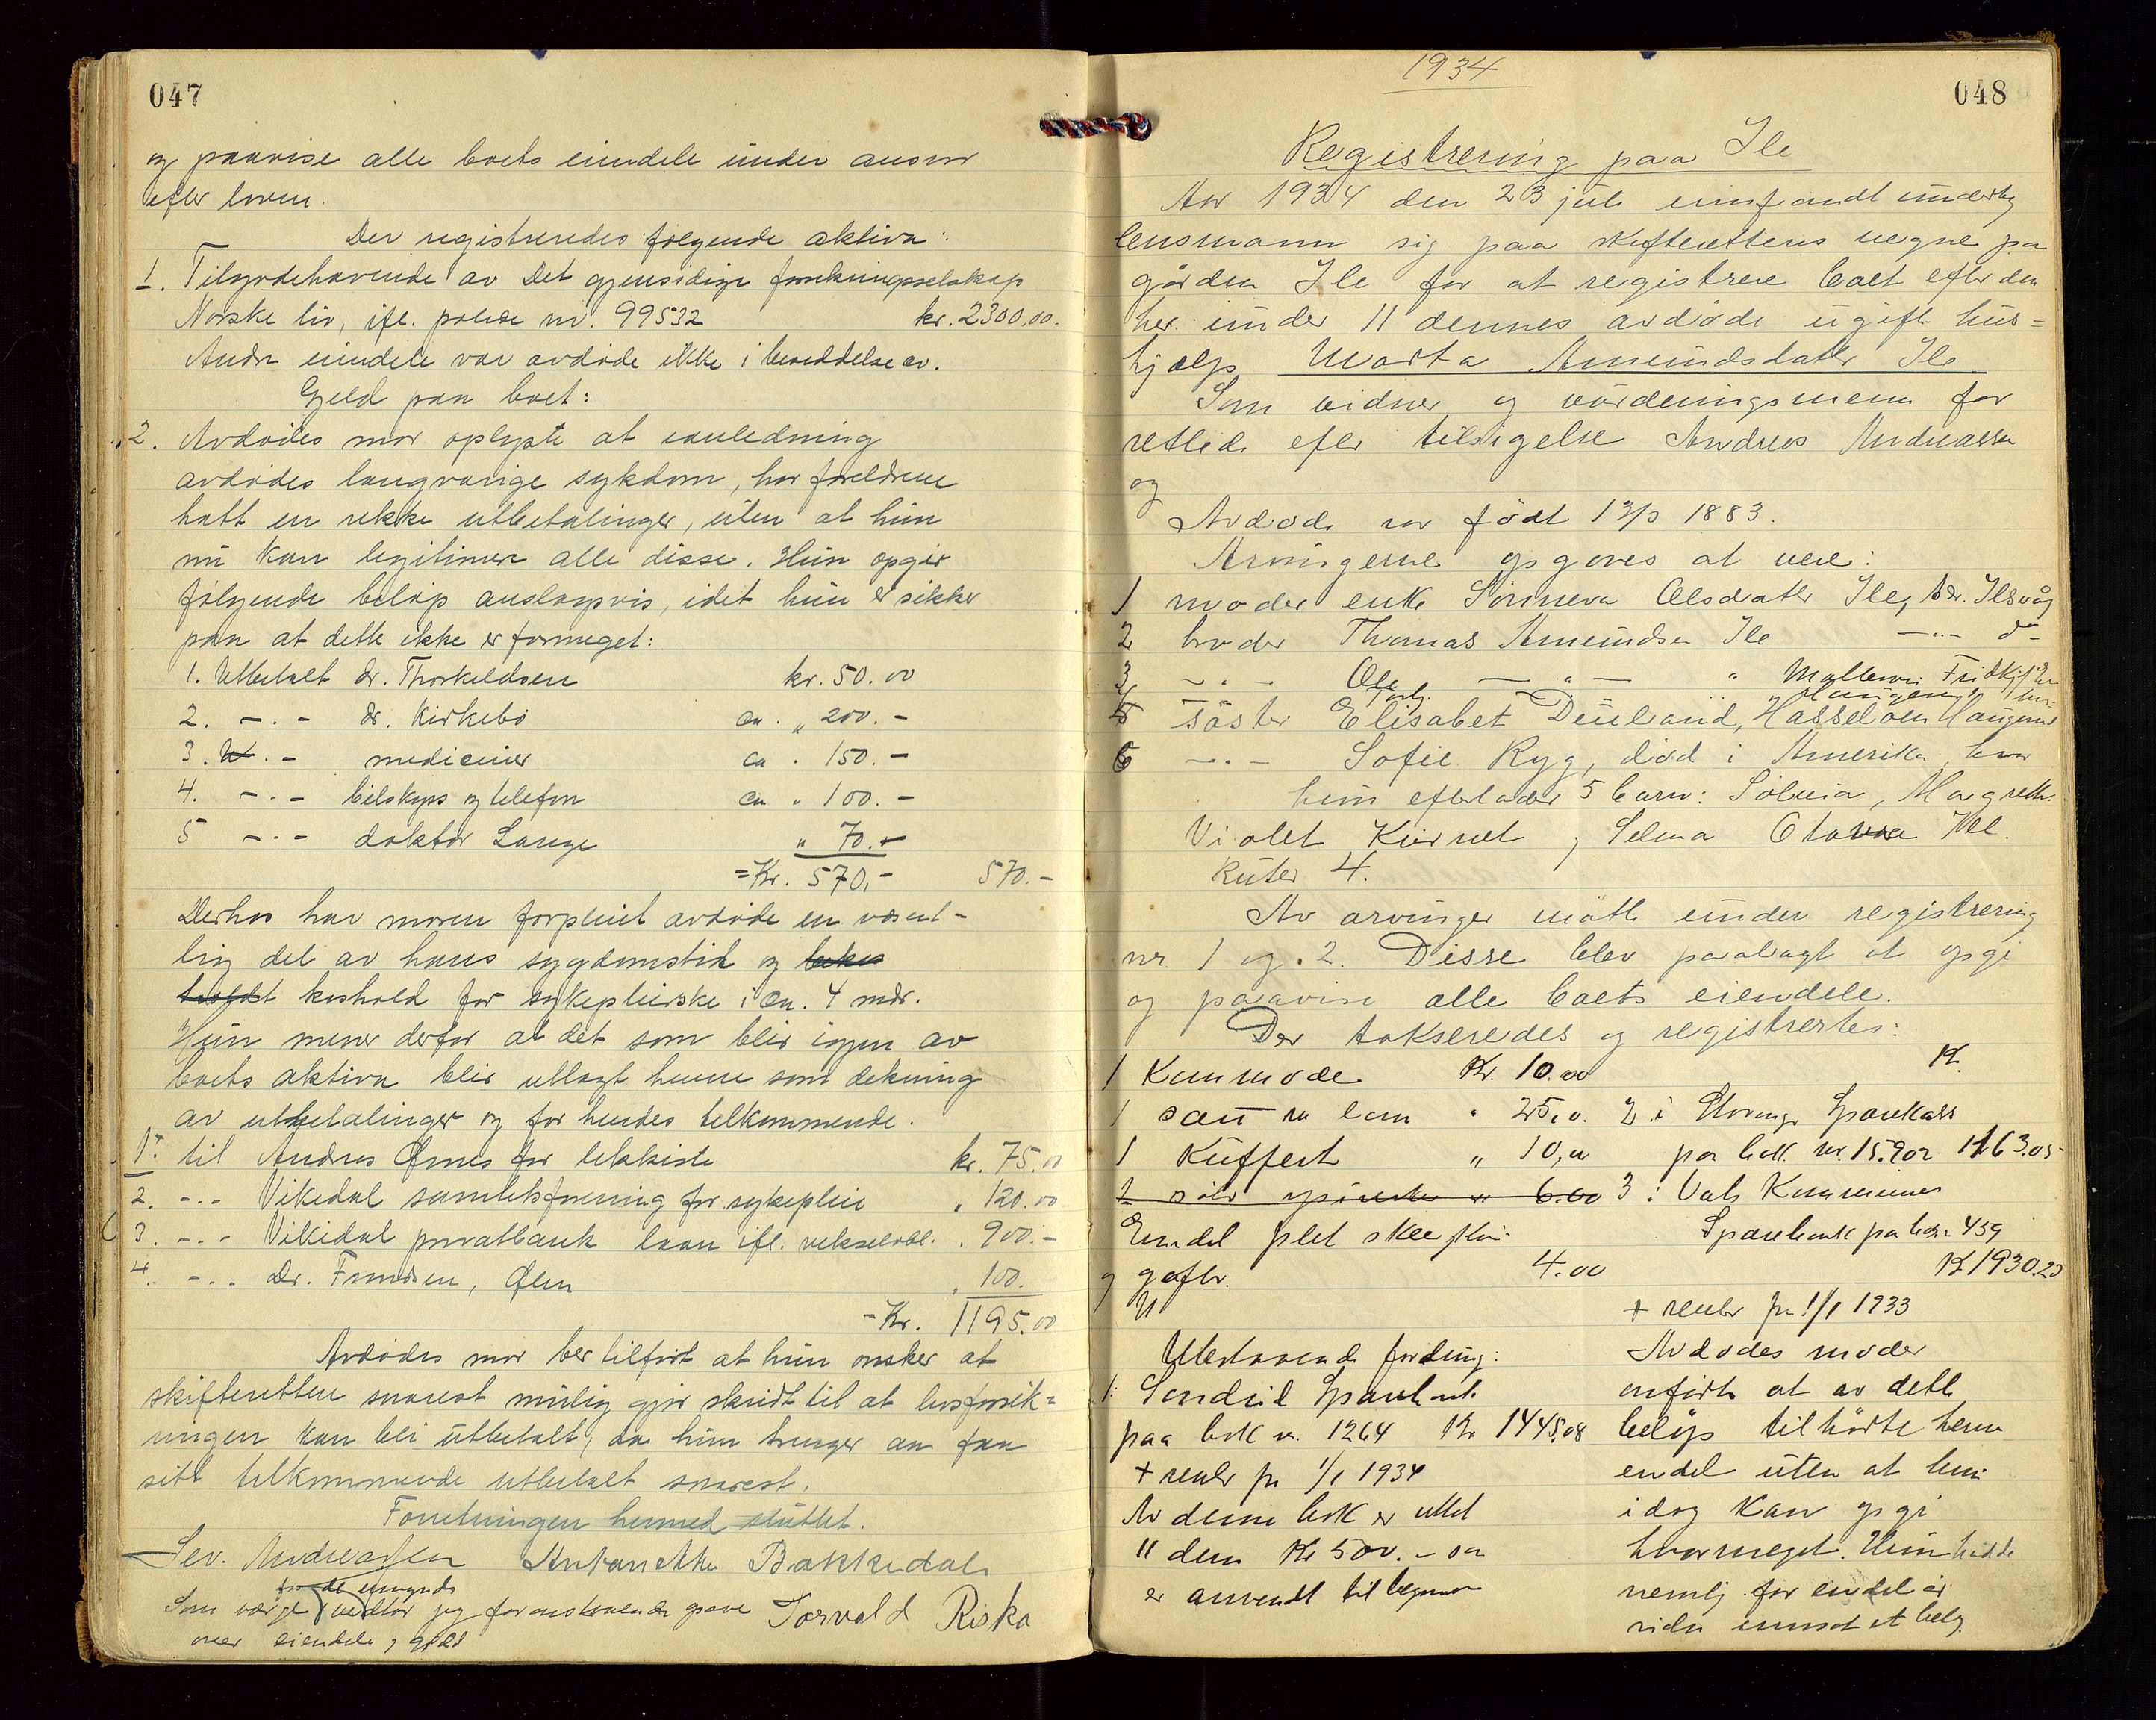 047
og paavise alle boets eiendele under ansvar
efter loven.
Der registreredes følgende aktiva:
1. Tilgodehavende av Det gjensidige forsikringsselskap
Norske liv, ifl. polise nr. 99532 kr. 2300.00.
Andre eiendele var avdøde ikke i besiddelse av.
Gjeld paa boet:
2. Avdødes mor oplyste at i anledning
avdødes langvarige sykdom, har foreldrene
hatt en rekke utbetalinger, uten at hun
nu kan legitimere alle disse. Hun opgir
følgende beløp anslagsvis, idet hun er sikker
paa at dette ikke er formeget:
1. Utbetalt dr. Thorkeldsen kr. 50.00
2. -.- dr. Kirkebø ca. " 200.-
3. -.- mediciner ca " 150.-
4. -.- bilskyss og telefon ca " 100.-
5 -.- doktor Lange " 70.-
=Kr. 570,- 570.-
Derhos har moren forpleiet avdøde en vesent-
lig del av hans sygdomstid og
kosthold for sykepleierske i ca. 4 mdr.
Hun mener derfor at det som blir igjen av
boets aktiva blir utlagt henne som dekning
av utbetalinger og for hendes tilkommende.
1. til Andres Ørnes for likkiste kr. 75.00
2. -.- Vikedal sanitetsforening for sykepleie " 120.00
3. -.- Vikedal privatbank laan ifl. vekselobl. " 900.-
4. -.- Dr. Frandsen, Ølen " 100.
-Kr. 1195.00
Avdødes mor ber tilført at hun ønsker at
skifteretten snarest mulig gjør skridt til at livsforsik=
ringen kan bli utbetalt, da hun trenger an faa
sitt tilkommende utbetalt snarest.
Forretningen hermed sluttet.
Sev. Andreassen Antonette Bakkedal
for de umynde
Som værge vedtar jeg foranstaaende opgave Torvald Riska
over eiendele og gjeld
1934
048
Registrering paa Ile
Aar 1934 den 23 juli innfandt undertg
lensmann sig paa skifterettens vegne pa
gården Ile for at registrere boet efter den
her under 11 dennes avdøde ugift hus=
hjælp Marta Amundsdatter Ile
Som vidner og vurderingsmenn for
rettedes efter tilsigelse Andreas Andreassen
og
Avdøde var født 13/3 1883.
Arvingerne opgoves at være:
1 moder enke Sønneva Olsdatter Ile, adr. Ilsvåg
2 broder Thomas Amundsen Ile -"- do-
3 -.- Ole -"- "
5 søster Elisabet Dueland, Hasseløen Haugesund
6 -.- Sofie Ryg, død i Amerika, hvor
hun efterlader 5 barn: Solveia, Magrethe
Violet og Selma
Av arvinger møtte under registrering
nr. 1 og 2. Disse blev paalagt at opgi
og paavise alle boets eiendele.
Der takseredes og registrertes:
1 Kommode Kr. 10.00
1 sau m lam " 25.0.
1 Kuffert " 10,00
2 sølv spiseskeer " 6.00
Endel plet skeer
og gafler. 4.00
Utestaaende fordring:
1. Sandeid Sparebank
paa bok n. 1264 Kr 1445.08
+ renter fra 1/1 1934
Av denne bok er uttat
11 denn Kr 500.- som
er anvendt til begravelse
Kr.
2 i Stavang. Sparekasse
paa bok nr. 15.902 1163.05
3 i Vats Kommunes
Sparebank pa bok 459
Kr 1930.20
+ renter fra 1/1 1933
Avdødes moder
anførte at av dette
beløp tilhørte henne
endel uten at hun
idag kan opgi
hvormeget. Hun hadde
nemlig for endel år
siden innsat et beløp